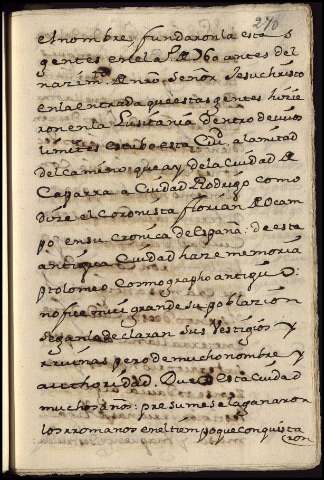 270
el nombre fundaronla estas
gentes en el aº de 760 antes del
nazimtº de nro señor Jesuchristo
en la entrada que estas gentes hizie
ron en la Lusitania dentro de cuios
limites estubo esta Ciu. a la mitad
del camino que ay de la Ciudad de
Caparra a Ciudad Rodrigo como
dize el Coronista florian de Ocam
po en su Cronica de España: de esta
antigua Ciudad haze memoria
ptolomeo Cosmographo antiguo:
no fue mui grande su poblazion
segun la declaran sus Vestigios y
rruinas pero de mucho nombre y
authoridad. Duró esta Ciudad
muchos años: presumese la ganaron
los rromanos en el tiempo que conquista
ron